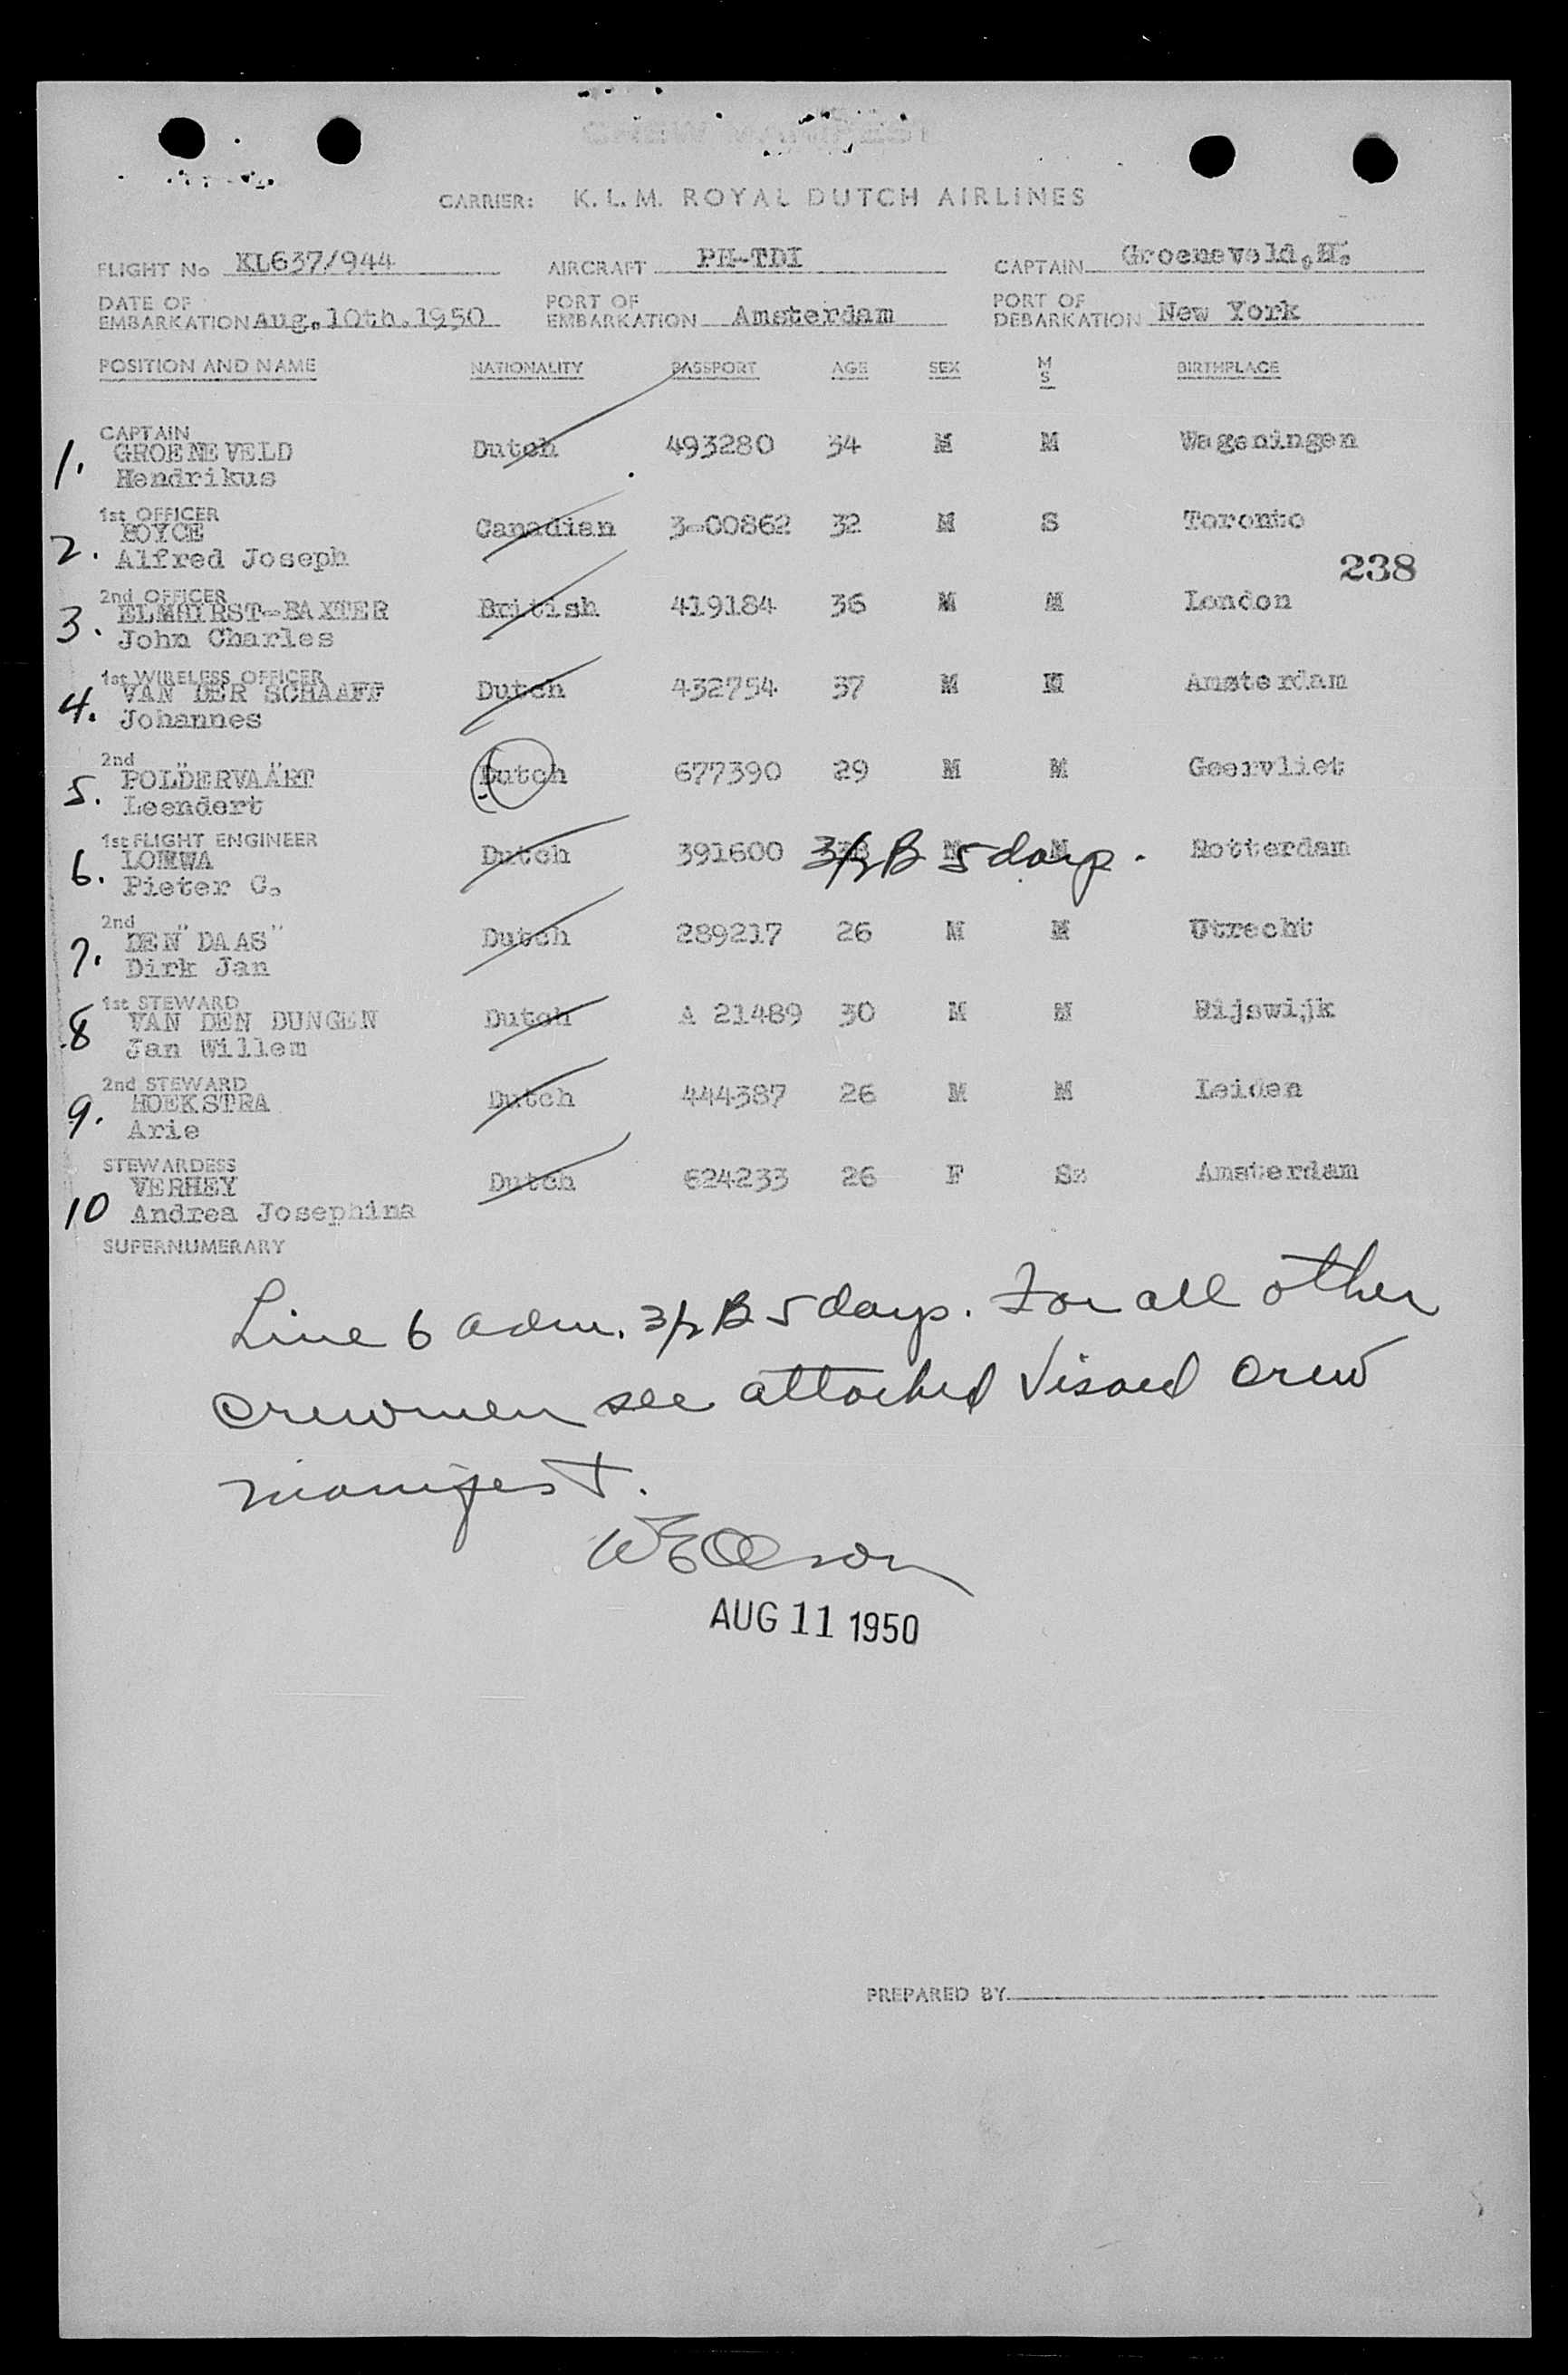 CREW MANIFEST
CARRIER: K. L. M. ROYAL DUTCH AIRLINES
FLIGHT No KL637/944 AIRCRAFT PH-TDI CAPTAIN Groeneveld,H.
DATE OF EMBARKATION Aug.10th.1950 PORT OF EMBARKATION Amsterdam PORT OF DEBARKATION New York
POSITION AND NAME NATIONALITY PASSPORT AGE SEX M S BIRTHPLACE
CAPTAIN
1. GROENEVELD Dutch 493280 34 M M Wageningen
Hendrikus
1st OFFICER
2. ROYCE Canadian 3-00862 32 M S Toronto
Alfred Joseph
238
2nd OFFICER
3. ELMHIRST-BAXTER British 419184 36 M M London
John Charles
1st WIRELESS OFFICER
4. VAN DER SCHAAFF Dutch 432754 37 M M Amsterdam
Johannes
2nd " "
5. POLDERVAART Dutch 677390 29 M M Geervliet
Leendert
1st FLIGHT ENGINEER
6. Dutch 391600 3/2 B 5 days. Rotterdam
Pieter C.
2nd " "
7. DEN DAAS Dutch 289217 26 M M Utrecht
Dirk Jan
1st STEWARD
8 VAN DEN DUNGEN Dutch A 21489 30 M M Rijswijk
Jan Willem
2nd STEWARD
9. HOEKSTRA Dutch 444387 26 M M Leiden
Arie
STEWARDESS
10 VERHEY Dutch 624233 26 F S Amsterdam
Andrea Josephina
SUPERNUMERARY
Line 6 adm. 3/2 B 5 days. For all other
crewmen see attached Visaed crew
manifest.
W E Olson
AUG 11 1950
PREPARED BY